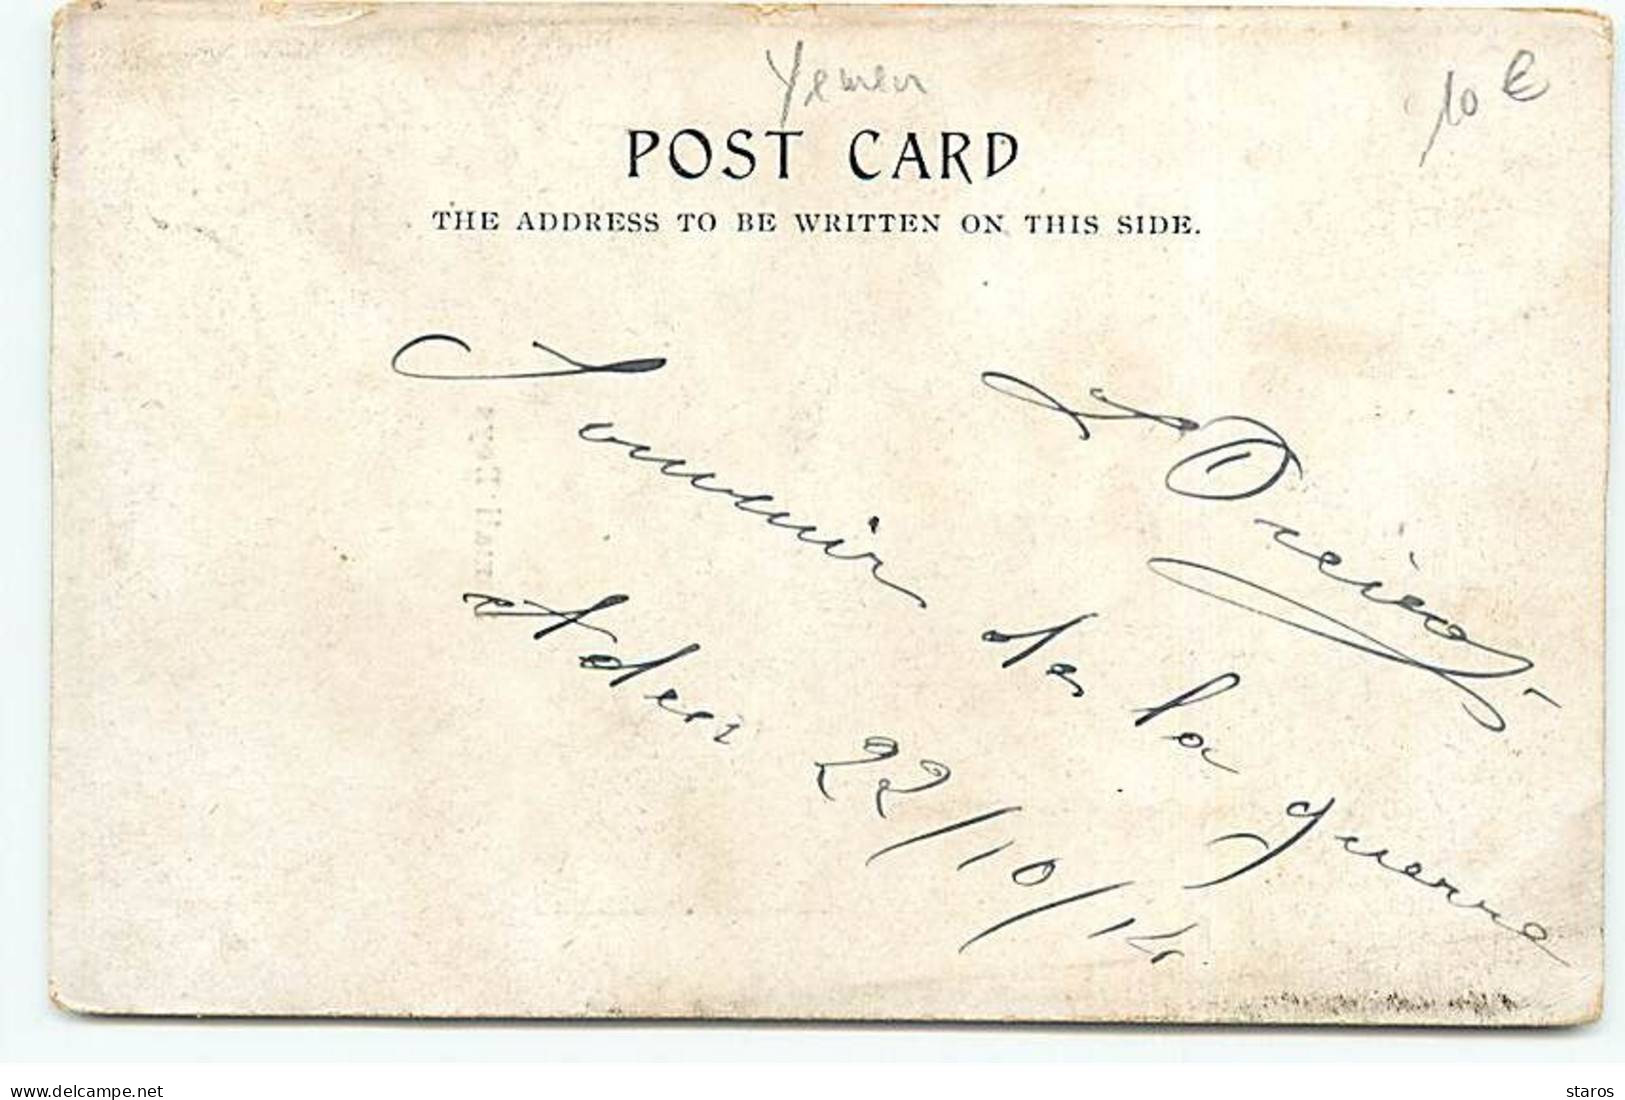 Yemen
10 €
POST CARD
THE ADDRESS TO BE WRITTEN ON THIS SIDE.
Souvenir de la guerre
Aden 22/10/14
www.delcampe.net
staros